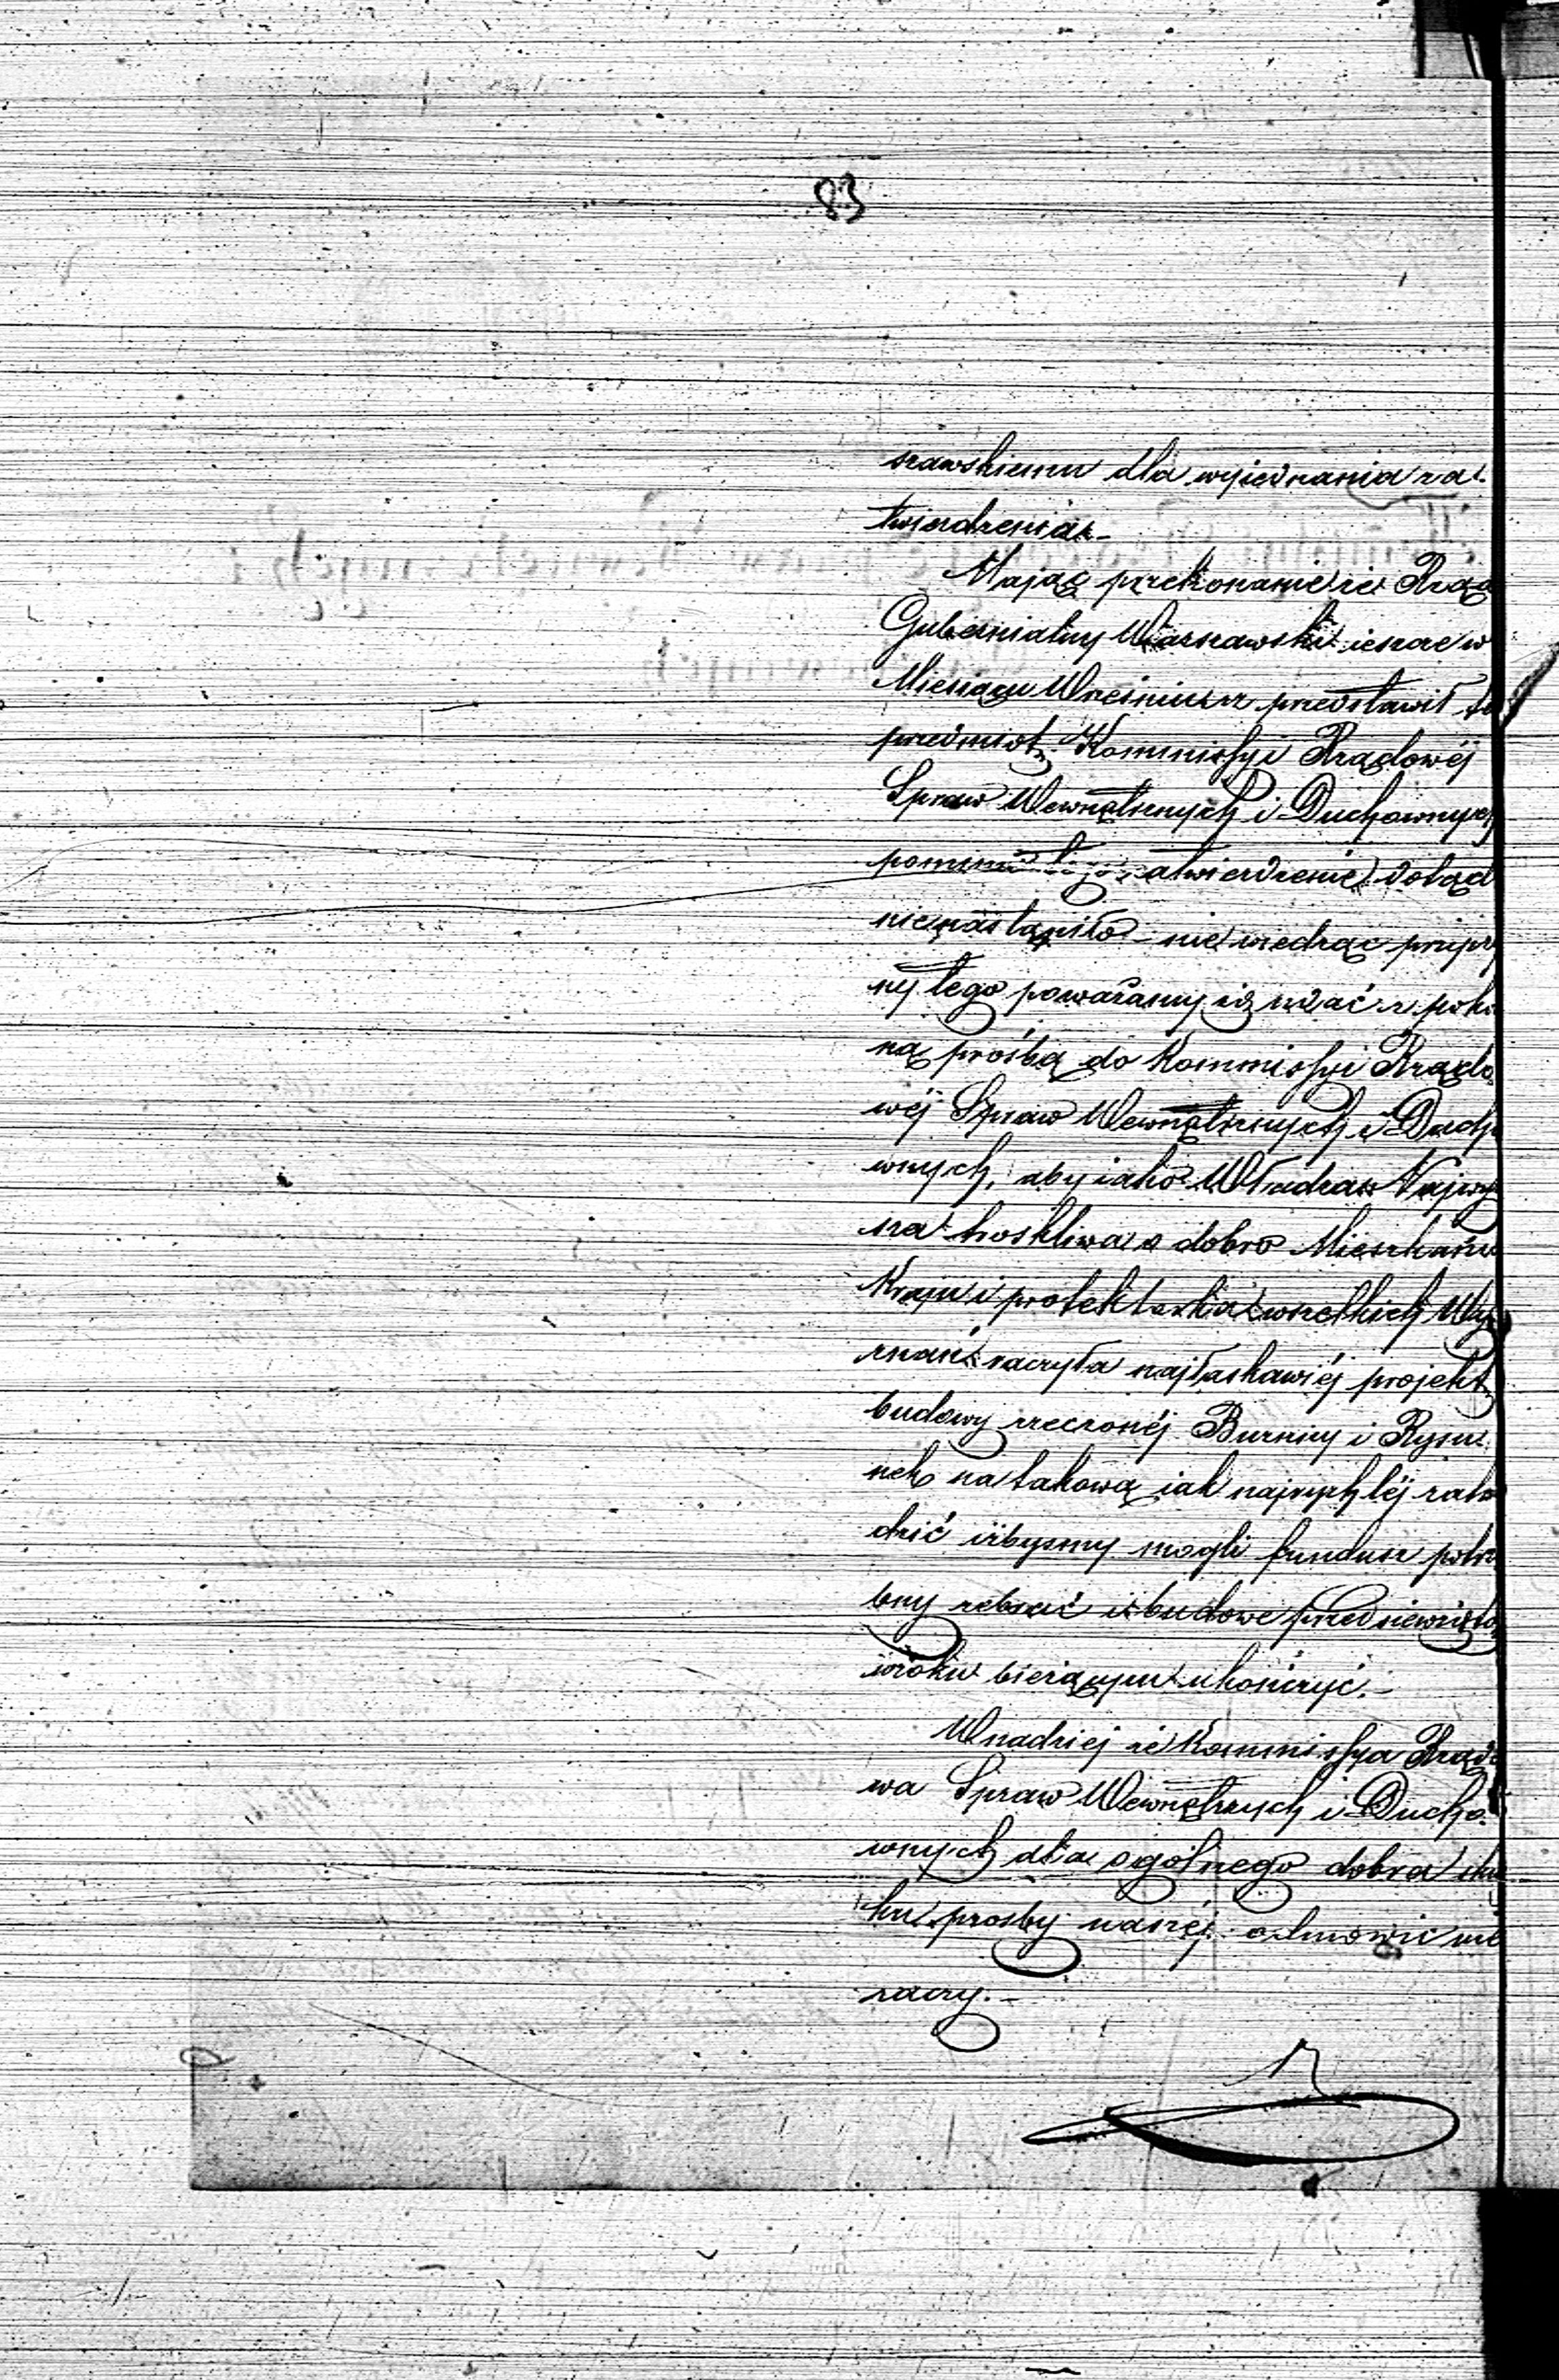 83
szawskiemu dla wyiednania za-
twierdzenia.-
Maiąc przekonanie że Rząd
Gubernialny Warszawski ieszcze w
Miesiącu Wrześniu z.r. przedstawił te
przedmiot Kommissyi Rządowéj
Spraw Wewnętrznych i Duchownych
pomimo tego zatwierdzenie dotąd
nienastąpiło - nie wiedząc przyczy
ny tego poważamy się udać z poko
ną prośbą do Kommissyi Rządo
wéj Spraw Wewnętrznych i Ducho
wnych, aby iako Władza Najwy
sza troskliwa o dobro Mieszkańc
Kraju i protektorka wszelkich Wy
znań raczyła najłaskawiéj projekt
budowy rzeczonéj Burnicy i Rysu
nek na takową iak najrychléj zatw
dzić iżbyśmy mogli fundusz potrz
bny zebrać i budowe przedsiewziętą
w roku bieżącym ukończyć.-
W nadziej że Kommissya Rządo
wa Spraw Wewnętrznych i Ducho-
wnych dla ogólnego dobra
prosby naszéj odmówić nie
raczy.-